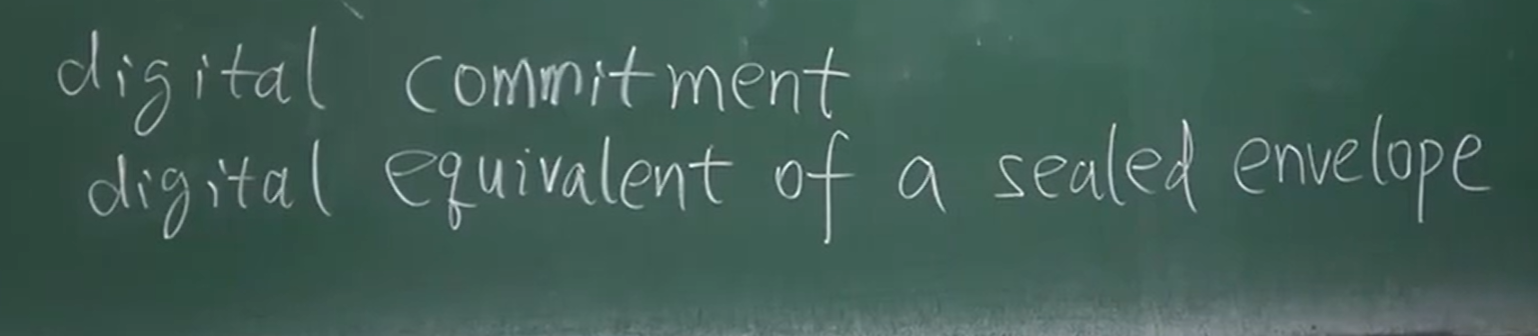 digital commitment
digital equivalent of a sealed envelope